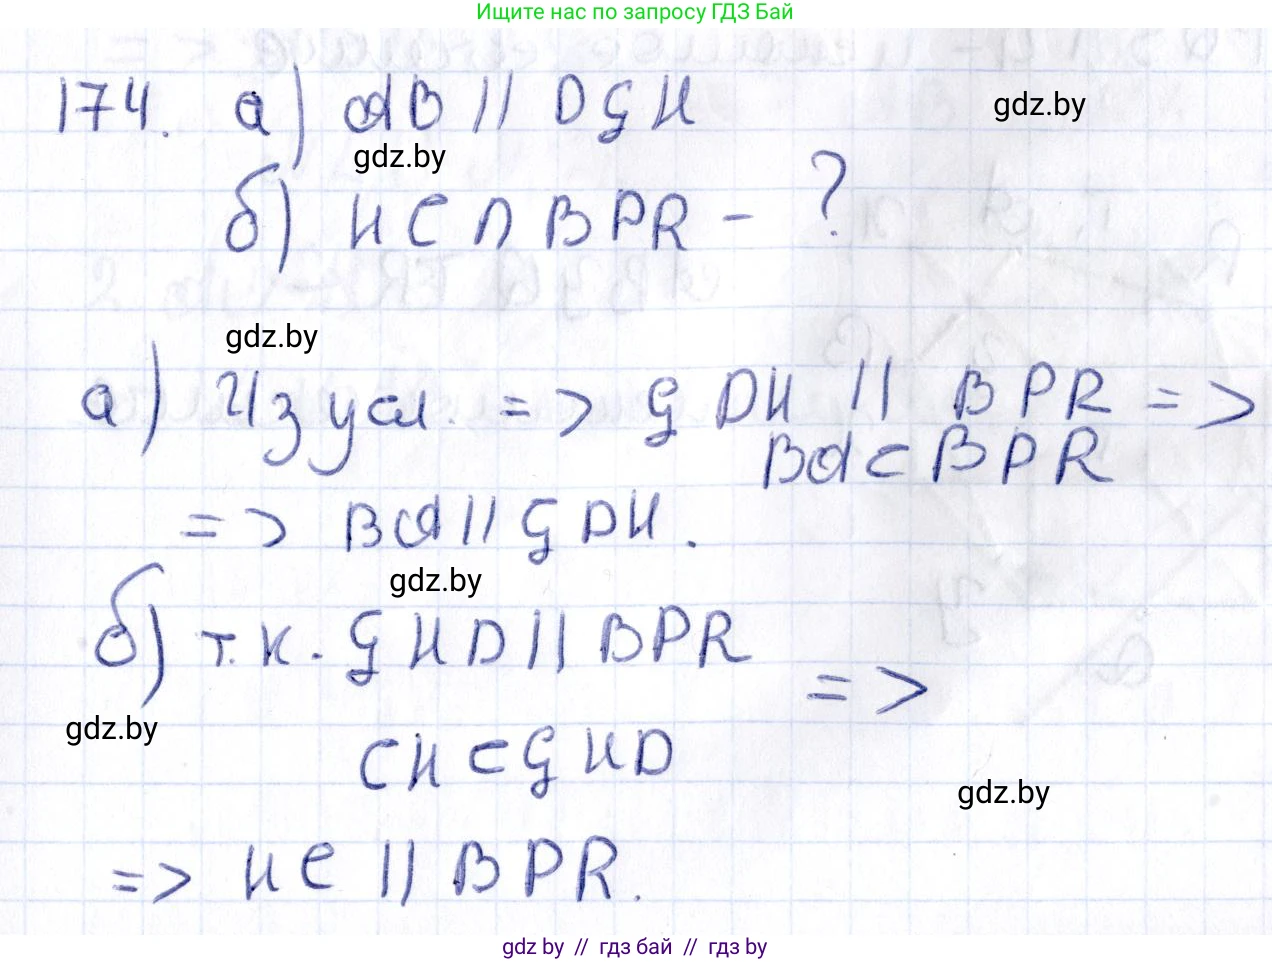 Ищите нас по запросу ГДЗ Бай
174. а) АВ || DGH
gdz.by
gdz.by
б) HC ∩ BPR - ?
gdz.by
а) Из усл. => GDH || BPR =>
BA ⊂ BPR
=> BA || GDH.
gdz.by
б) т.к. GHD || BPR
=>
gdz.by
CH ⊂ GHD
gdz.by
=> HC || BPR.
gdz.by // гдз бай // гдз.by